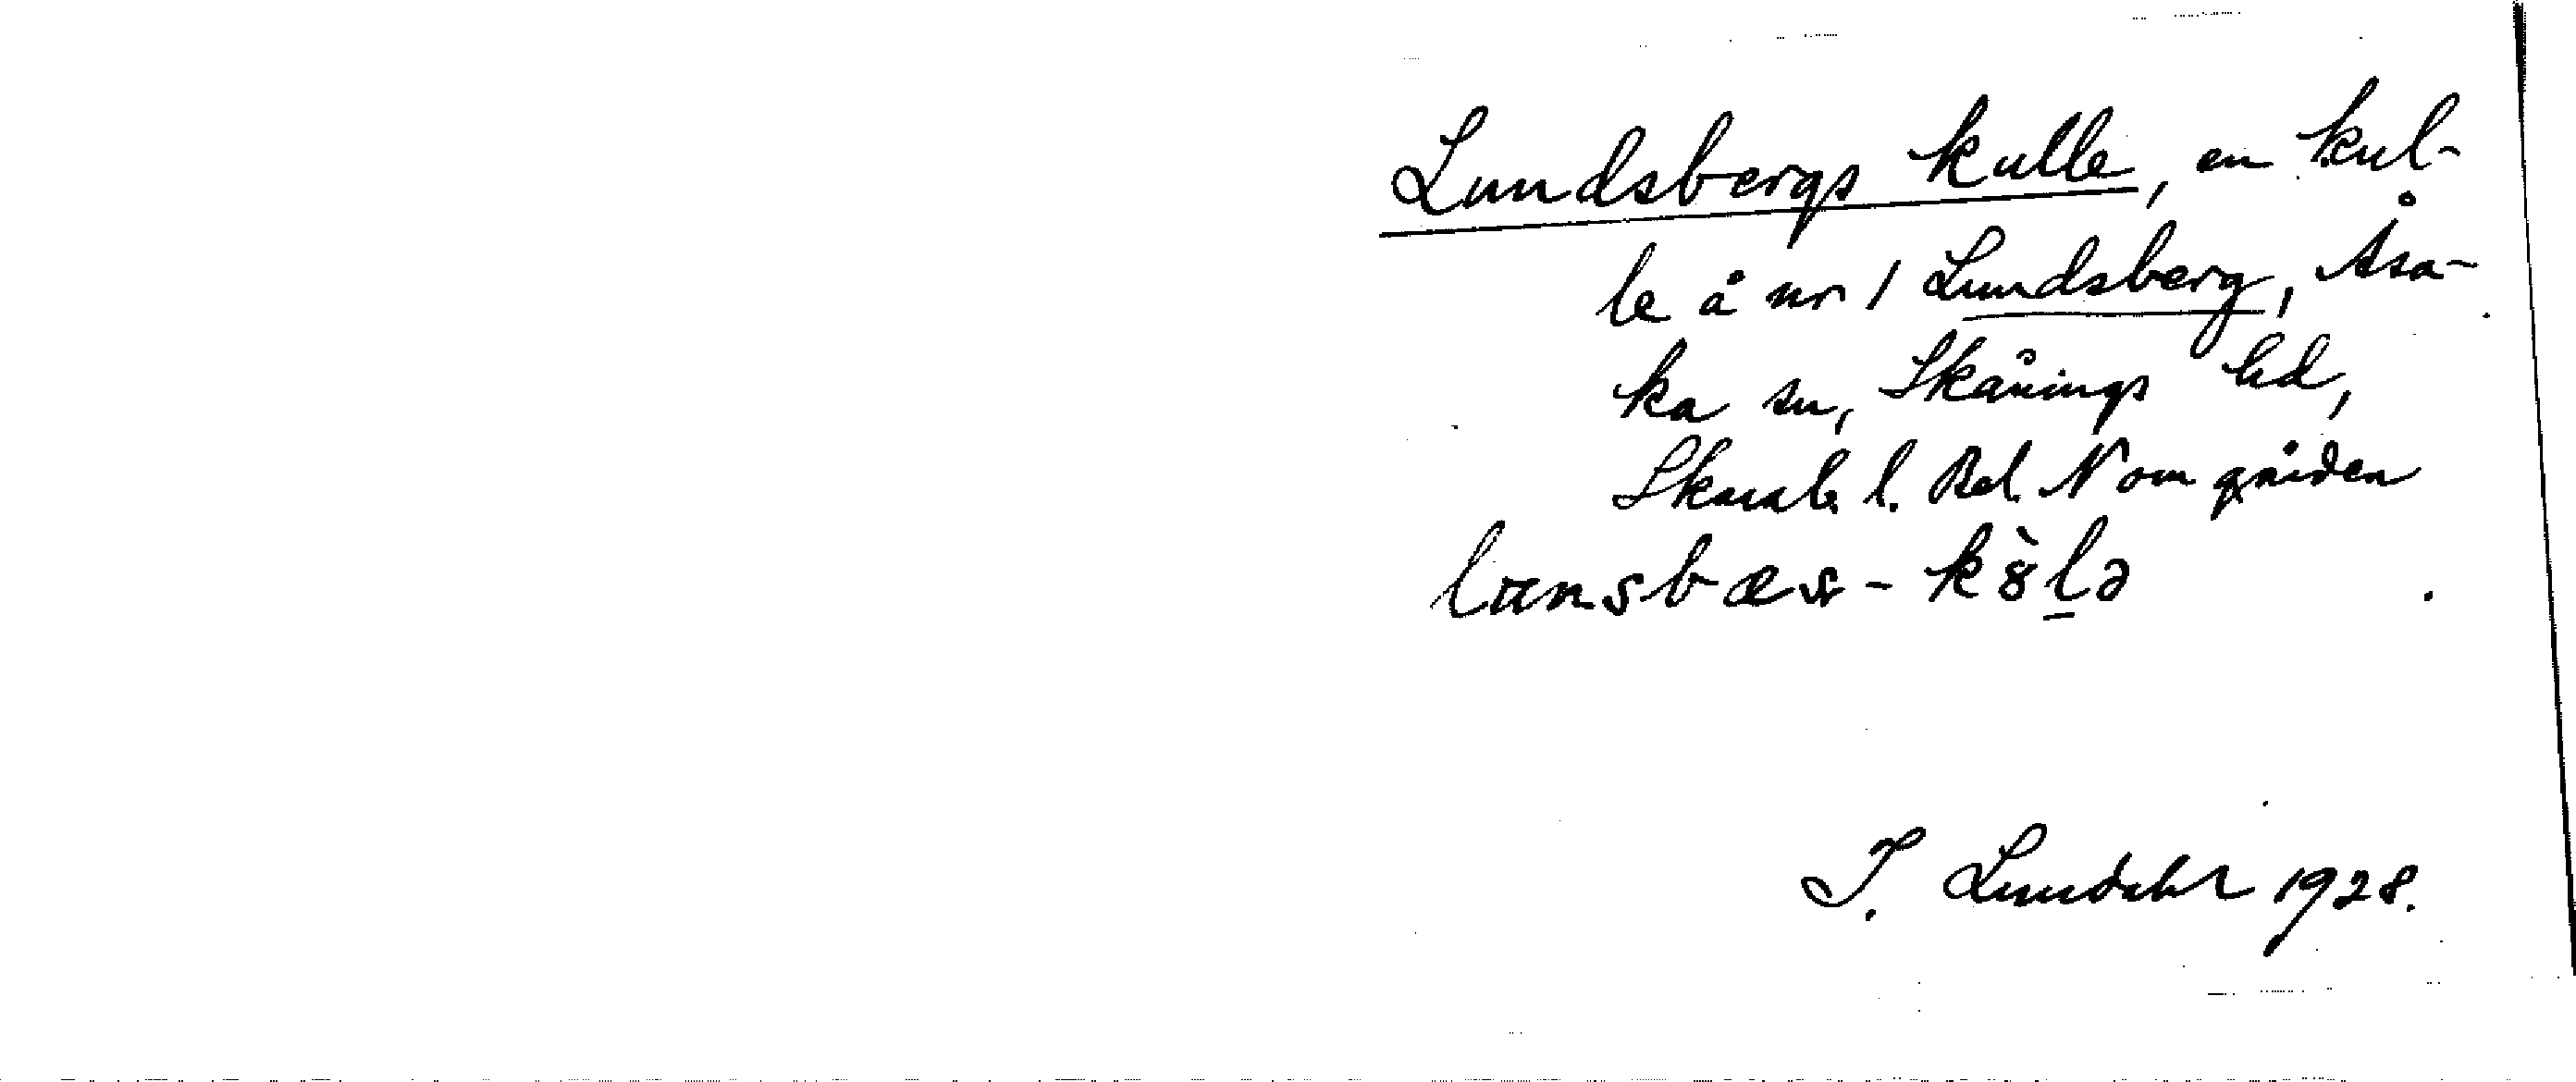 Lundsbergs kulle, en kul-
le å nr 1 Lundsberg, Åsa-
ka sn, Skånings hd,
Skarab. l. Bel. N om gården
lunsbæs - kȍlə
I. Lundahl 1928.